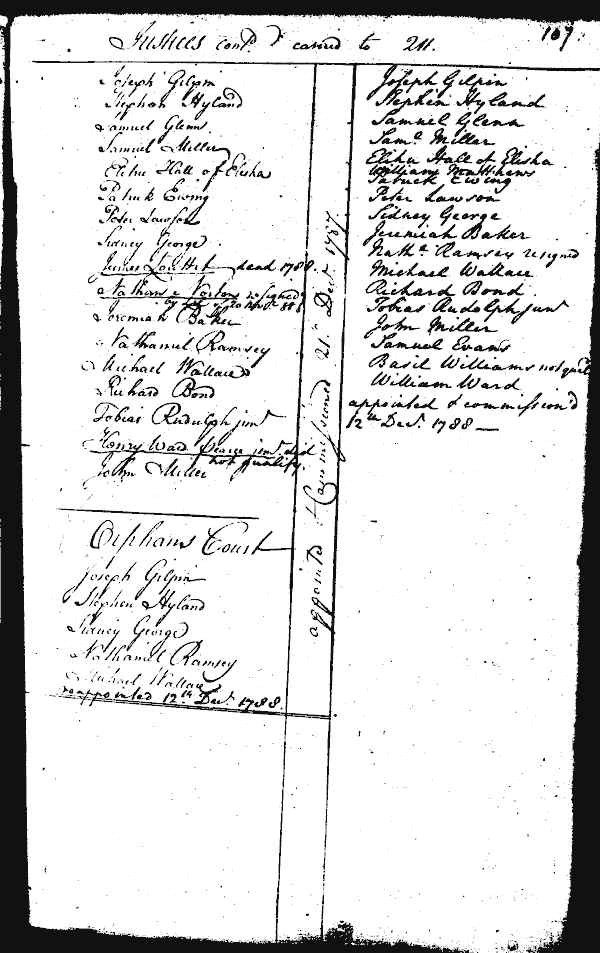 167.
Justices cont.d carried to 211.
Joseph Gilpin
Stephen Hyland
Samuel Glenn
Samuel Miller
Elihu Hall of Elisha
Patrick Ewing
Peter Lawson
Sidney George
James dead 1788.
resigned
Jeremiah Baker
Nathaniel Ramsey
Michael Wallace
Richard Bond
Tobias Rudulph jun.r
Henry Ward Pearce jun.r did
not qualify.
John Miller
Orphans Court
Joseph Gilpin
Stephen Hyland
Sidney George
Nathaniel Ramsey
Michael Wallace
reappointed 12.th Dec.r 1788.
appointed & Commissioned 21.st Dec.r 1787.
Joseph Gilpin
Stephen Hyland
Samuel Glenn
Sam.l Miller
Elihu Hall of Elisha
William Matthews
Patrick Ewing
Peter Lawson
Sidney George
Jeremiah Baker
Nath.l Ramsey resigned
Michael Wallace
Richard Bond
Tobias Rudolph jun.r
John Miller
Samuel Evans
Basil Williams not qual
William Ward
appointed & commission'd
12.th Dec.r 1788—